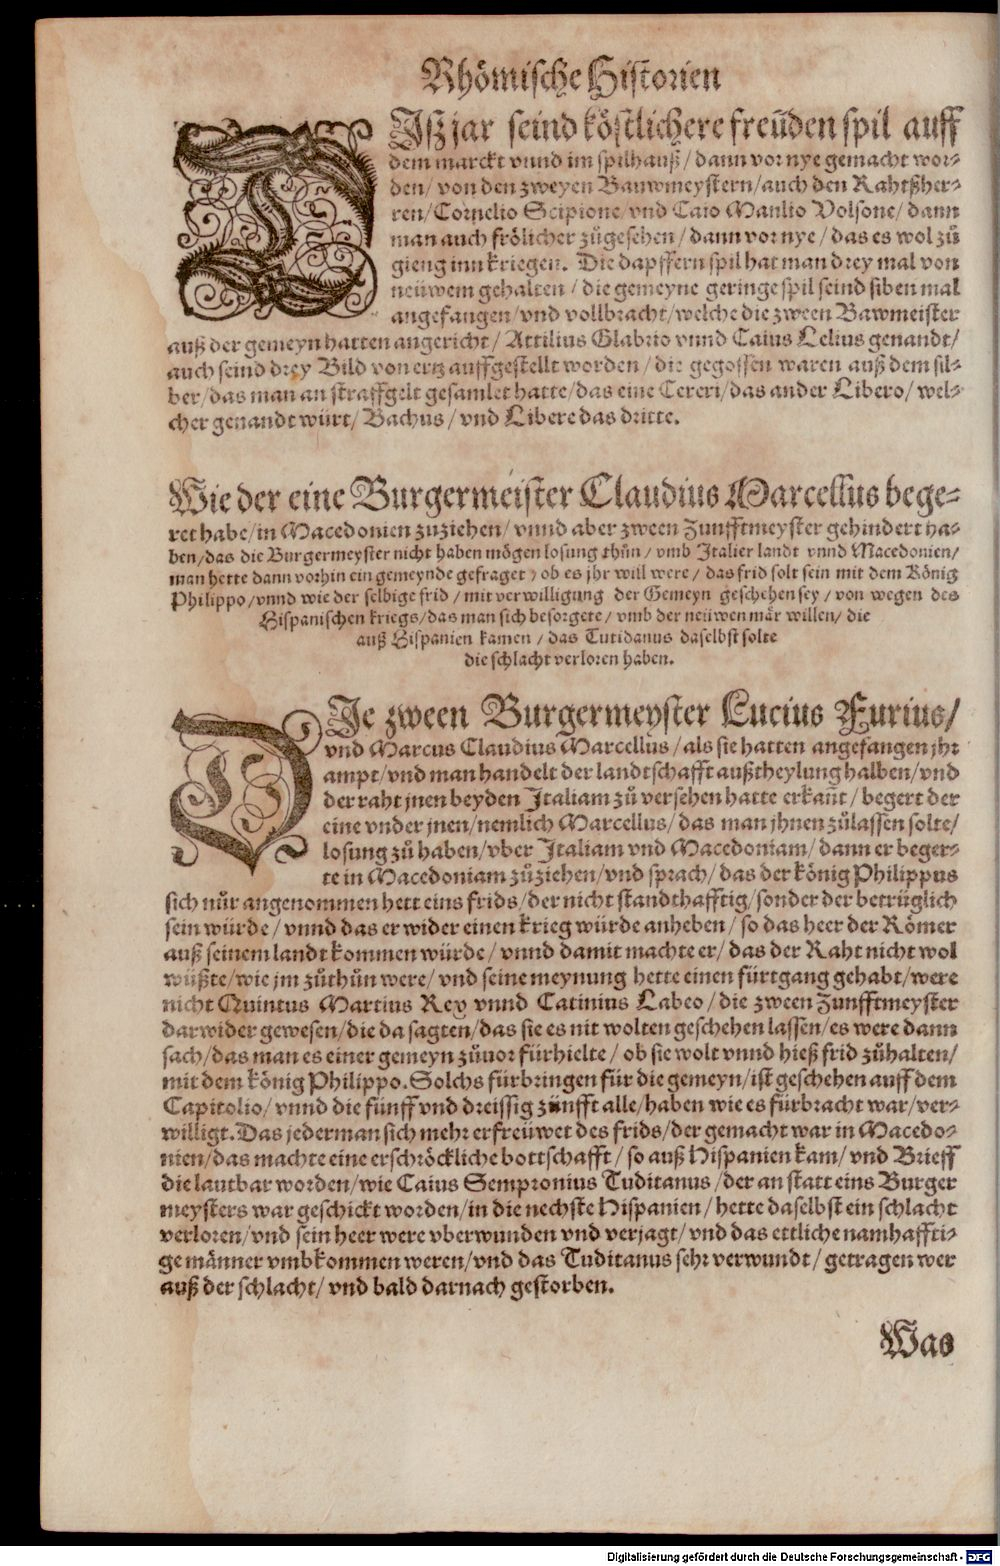 Rhömische Historien
DIsz jar seind köstlichere freüden spil auff
dem marckt vnnd im spilhauß / dann vor nye gemacht wor-
den / von den zweyen Bauwmeystern / auch den Rahtßher-
ren / Cornelio Scipione vnd Caio Manlio Volsone / dann
man auch frölicher zůgesehen / dann vor nye / das es wol zů
gieng inn kriegen. Die dapffern spil hat man drey mal von
neüwem gehalten / die gemeyne geringe spil seind siben mal
angefangen / vnd vollbracht / welche die zween Bawmeister
auß der gemeyn hatten angericht / Attilius Glabrio vnnd Caius Lelius genandt /
auch seind drey Bild von ertz auffgestellt worden / die gegossen waren auß dem sil-
ber / das man an straffgelt gesamlet hatte / das eine Cereri / das ander Libero / wel-
cher genandt würt / Bachus / vnd Libere das dritte.
Wie der eine Burgermeister Claudius Marcellus bege-
ret habe / in Macedonien zuziehen / vnnd aber zween Zunfftmeyster gehindert ha-
ben / das die Burgermeyster nicht haben mögen losung thůn / vmb Italier landt vnnd Macedonien /
man hette dann vorhin ein gemeynde gefraget / ob es jhr will were / das frid solt sein mit dem König
Philippo / vnnd wie der selbige frid / mit verwilligung der Gemeyn geschehen sey / von wegen des
Hispanischen kriegs / das man sich besorgete / vmb der neüwen mär willen / die
auß Hispanien kamen / das Tutidanus daselbst solte
die schlacht verloren haben.
DIe zween Burgermeyster Lucius Furius /
vnd Marcus Claudius Marcellus / als sie hatten angefangen jhr
ampt / vnd man handelt der landtschafft außtheylung halben / vnd
der raht jnen beyden Italiam zů versehen hatte erkañt / begert der
eine vnder jnen / nemlich Marcellus / das man jhnen zůlassen solte /
losung zů haben / vber Italiam vnd Macedoniam / dann er beger-
te in Macedoniam zůziehen / vnd sprach / das der könig Philippus
sich nůr angenommen hett eins frids / der nicht standthafftig / sonder der betrüglich
sein würde / vnnd das er wider einen krieg würde anheben / so das heer der Römer
auß seinem landt kommen würde / vnnd damit machte er / das der Raht nicht wol
wüßte / wie jm zůthůn were / vnd seine meynung hette einen fürtgang gehabt / were
nicht Quintus Martius Rex vnnd Catinius Labeo / die zween Zunfftmeyster
darwider gewesen / die da sagten / das sie es nit wolten geschehen lassen / es were dann
sach / das man es einer gemeyn zůuor fürhielte / ob sie wolt vnnd hieß frid zůhalten /
mit dem könig Philippo. Solchs fürbringen für die gemeyn / ist geschehen auff dem
Capitolio / vnnd die fünff vnd dreissig zünfft alle / haben wie es fürbracht war / ver-
willigt. Das jederman sich mehr erfreüwet des frids / der gemacht war in Macedo-
nien / das machte eine erschröckliche bottschafft / so auß Hispanien kam / vnd Brieff
die lautbar worden / wie Caius Sempronius Tuditanus / der an statt eins Burger
meysters war geschickt worden / in die nechste Hispanien / hette daselbst ein schlacht
verloren / vnd sein heer were vberwunden vnd verjagt / vnd das ettliche namhaffti-
ge männer vmbkommen weren / vnd das Tuditanus sehr verwundt / getragen wer
auß der schlacht / vnd bald darnach gestorben.
Was
Digitalisierung gefördert durch die Deutsche Forschungsgemeinschaft - DFG